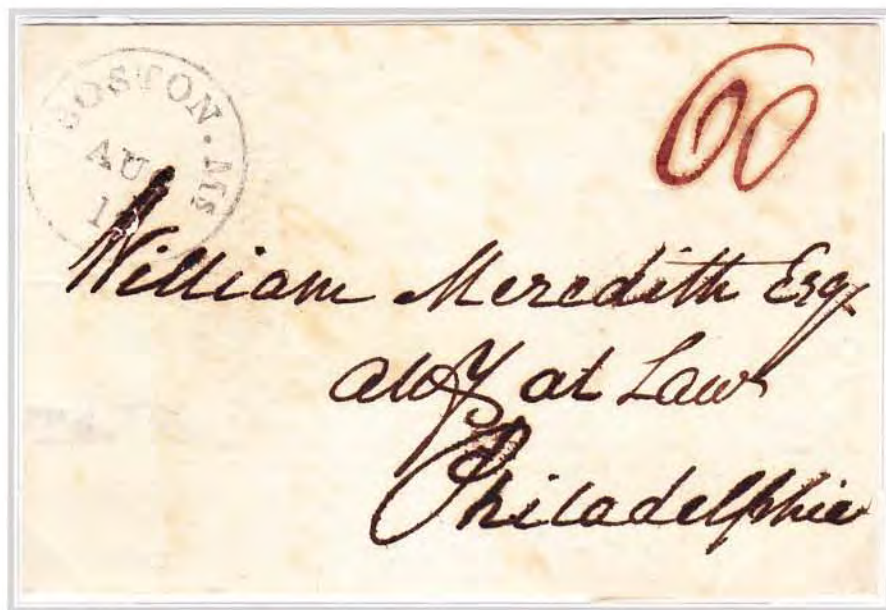 BOSTON. Ms
AU
60
William Meredith Esq
atty at Law
Philadelphia